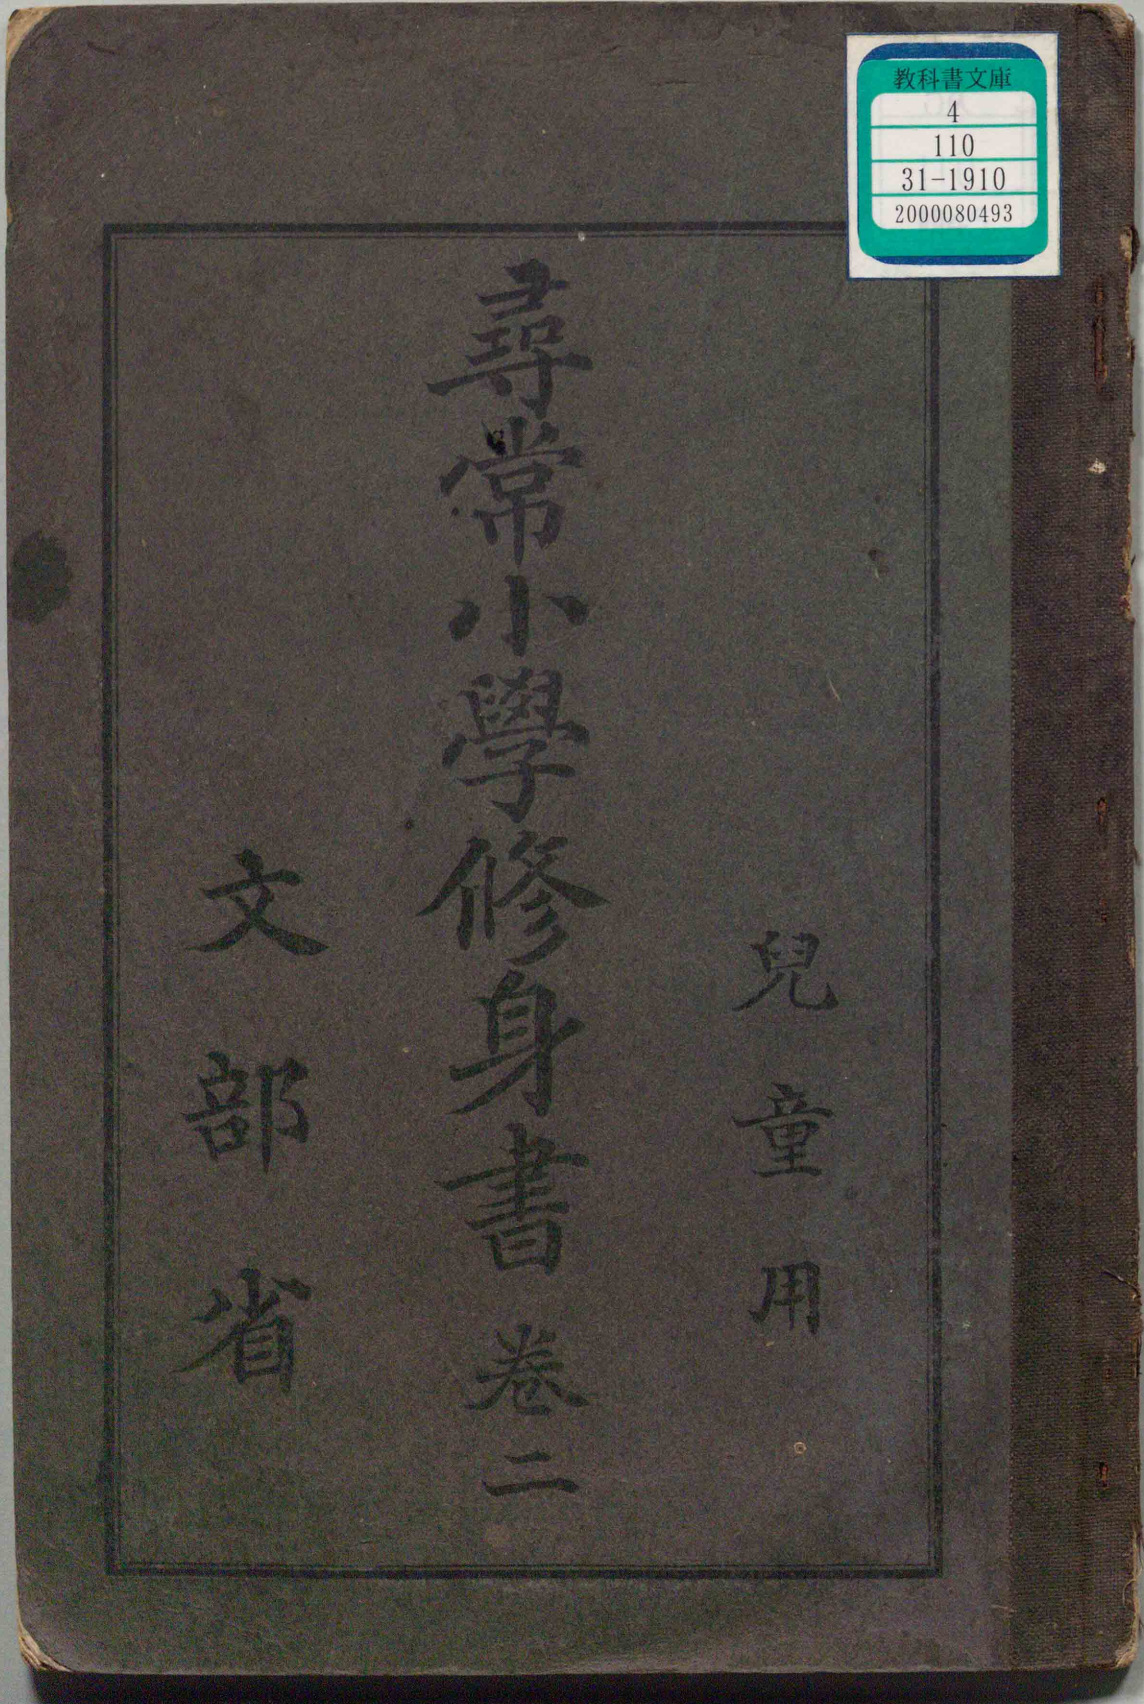 教科書文庫
4
110
31-1910
2000080493
兒童用
尋常小學修身書 卷二
文部省